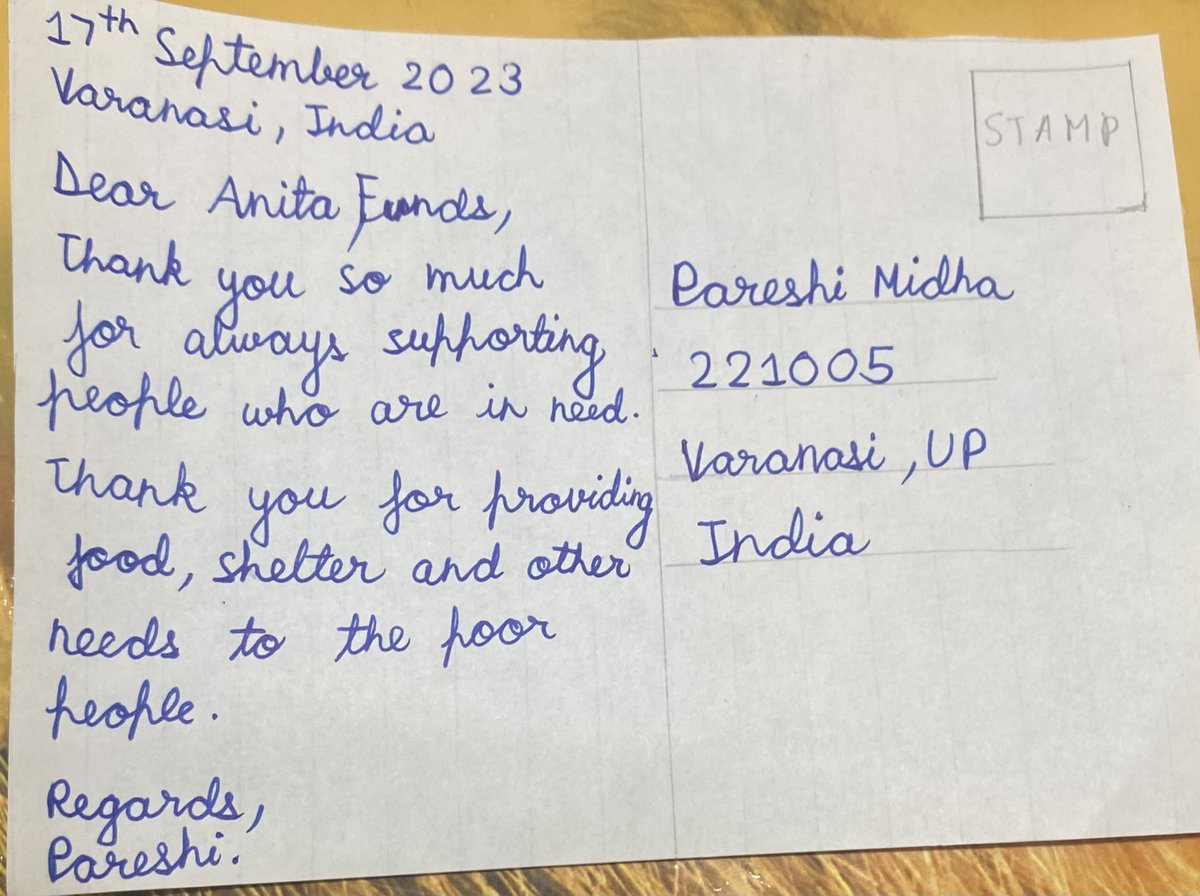 17th September 2023
Varanasi, India
Dear Anita Funds,
Thank you so much
for always supporting
people who are in need.
Thank you for providing
food, shelter and other
needs to the poor
people.
Regards,
Pareshi.
STAMP
Pareshi Midha
221005
Varanasi, UP
India